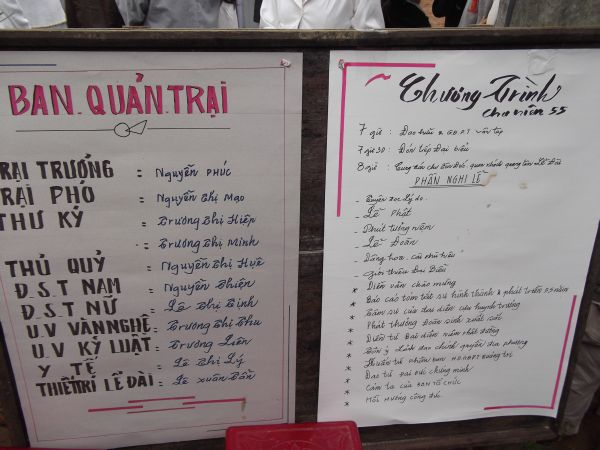 BAN QUẢN TRẠI
TRẠI TRƯỞNG : Nguyễn Phúc
TRẠI PHÓ : Nguyễn Thị Mạo
THƯ KÝ : Trương Thị Hiệp
: Trương Thị Minh
THỦ QUỸ : Nguyễn Thị Huệ
Đ.S.T NAM : Nguyễn Thiện
Đ.S.T NỮ : Lê Thị Bình
U.V VĂN NGHỆ : Trương Thị Thu
U.V KỶ LUẬT : Trương Liên
Y TẾ : Lê Thị Lý
THIẾT TRÍ LỄ ĐÀI : Lê Xuân Bồn
Chương Trình
Chu niên 55
7 giờ : Đạo hữu & GĐPT vân tập
7 giờ 30 : Đón tiếp Đại biểu
8 giờ : Cung đón chư Tôn Đức, quan khách quang lâm Lễ Đài
PHẦN NGHI LỄ
- Tuyên bố lý do
- Lễ Phật
- Phút tưởng niệm
- Lễ Đoàn
- Dâng hoa
- Giới thiệu Đại Biểu
* Diễn văn chào mừng
* Báo cáo tóm tắt sự hình thành & phát triển 55 năm
* Cảm sự của đại diện cựu huynh trưởng
* Phát thưởng Đoàn sinh xuất sắc
* Diễn từ Đại diện
* Góp ý Lãnh đạo chính quyền địa phương
* Huấn từ
* Đạo từ Đại Đức chứng minh
* Cảm tạ của BAN TỔ CHỨC
* Hồi hướng công đức.